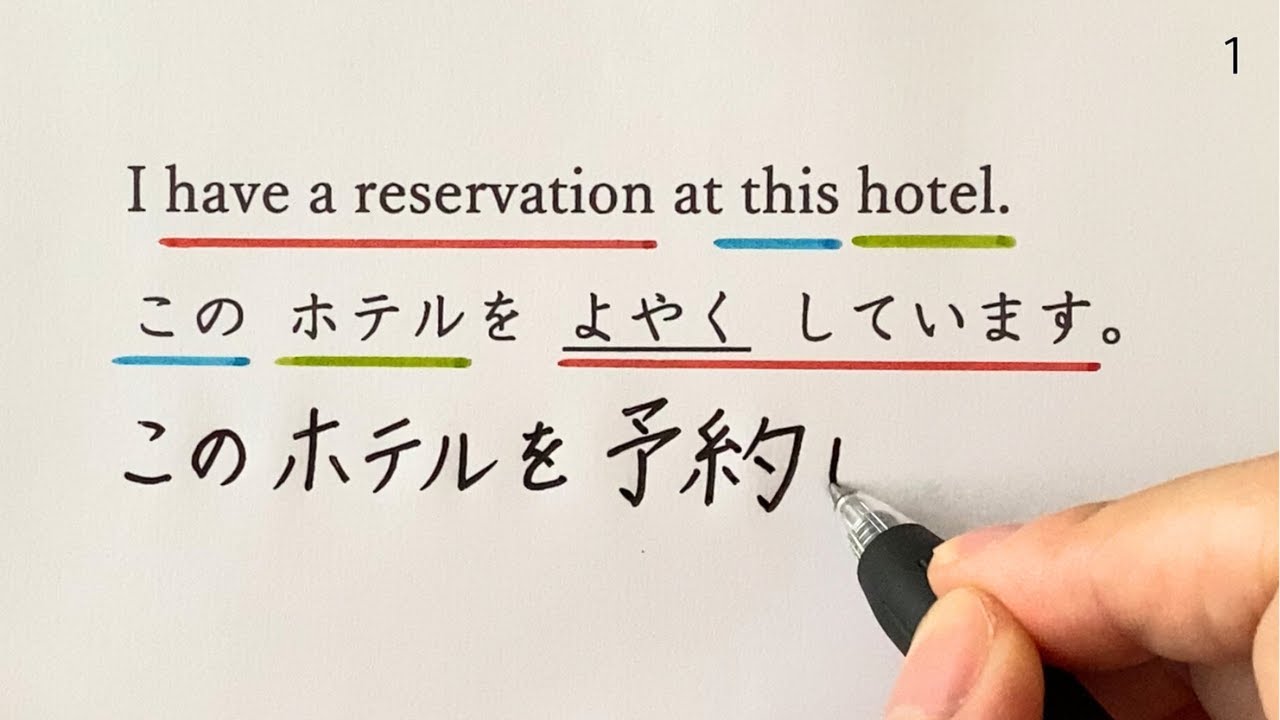 1
I have a reservation at this hotel.
この ホテルを よやく しています。
このホテルを予約し